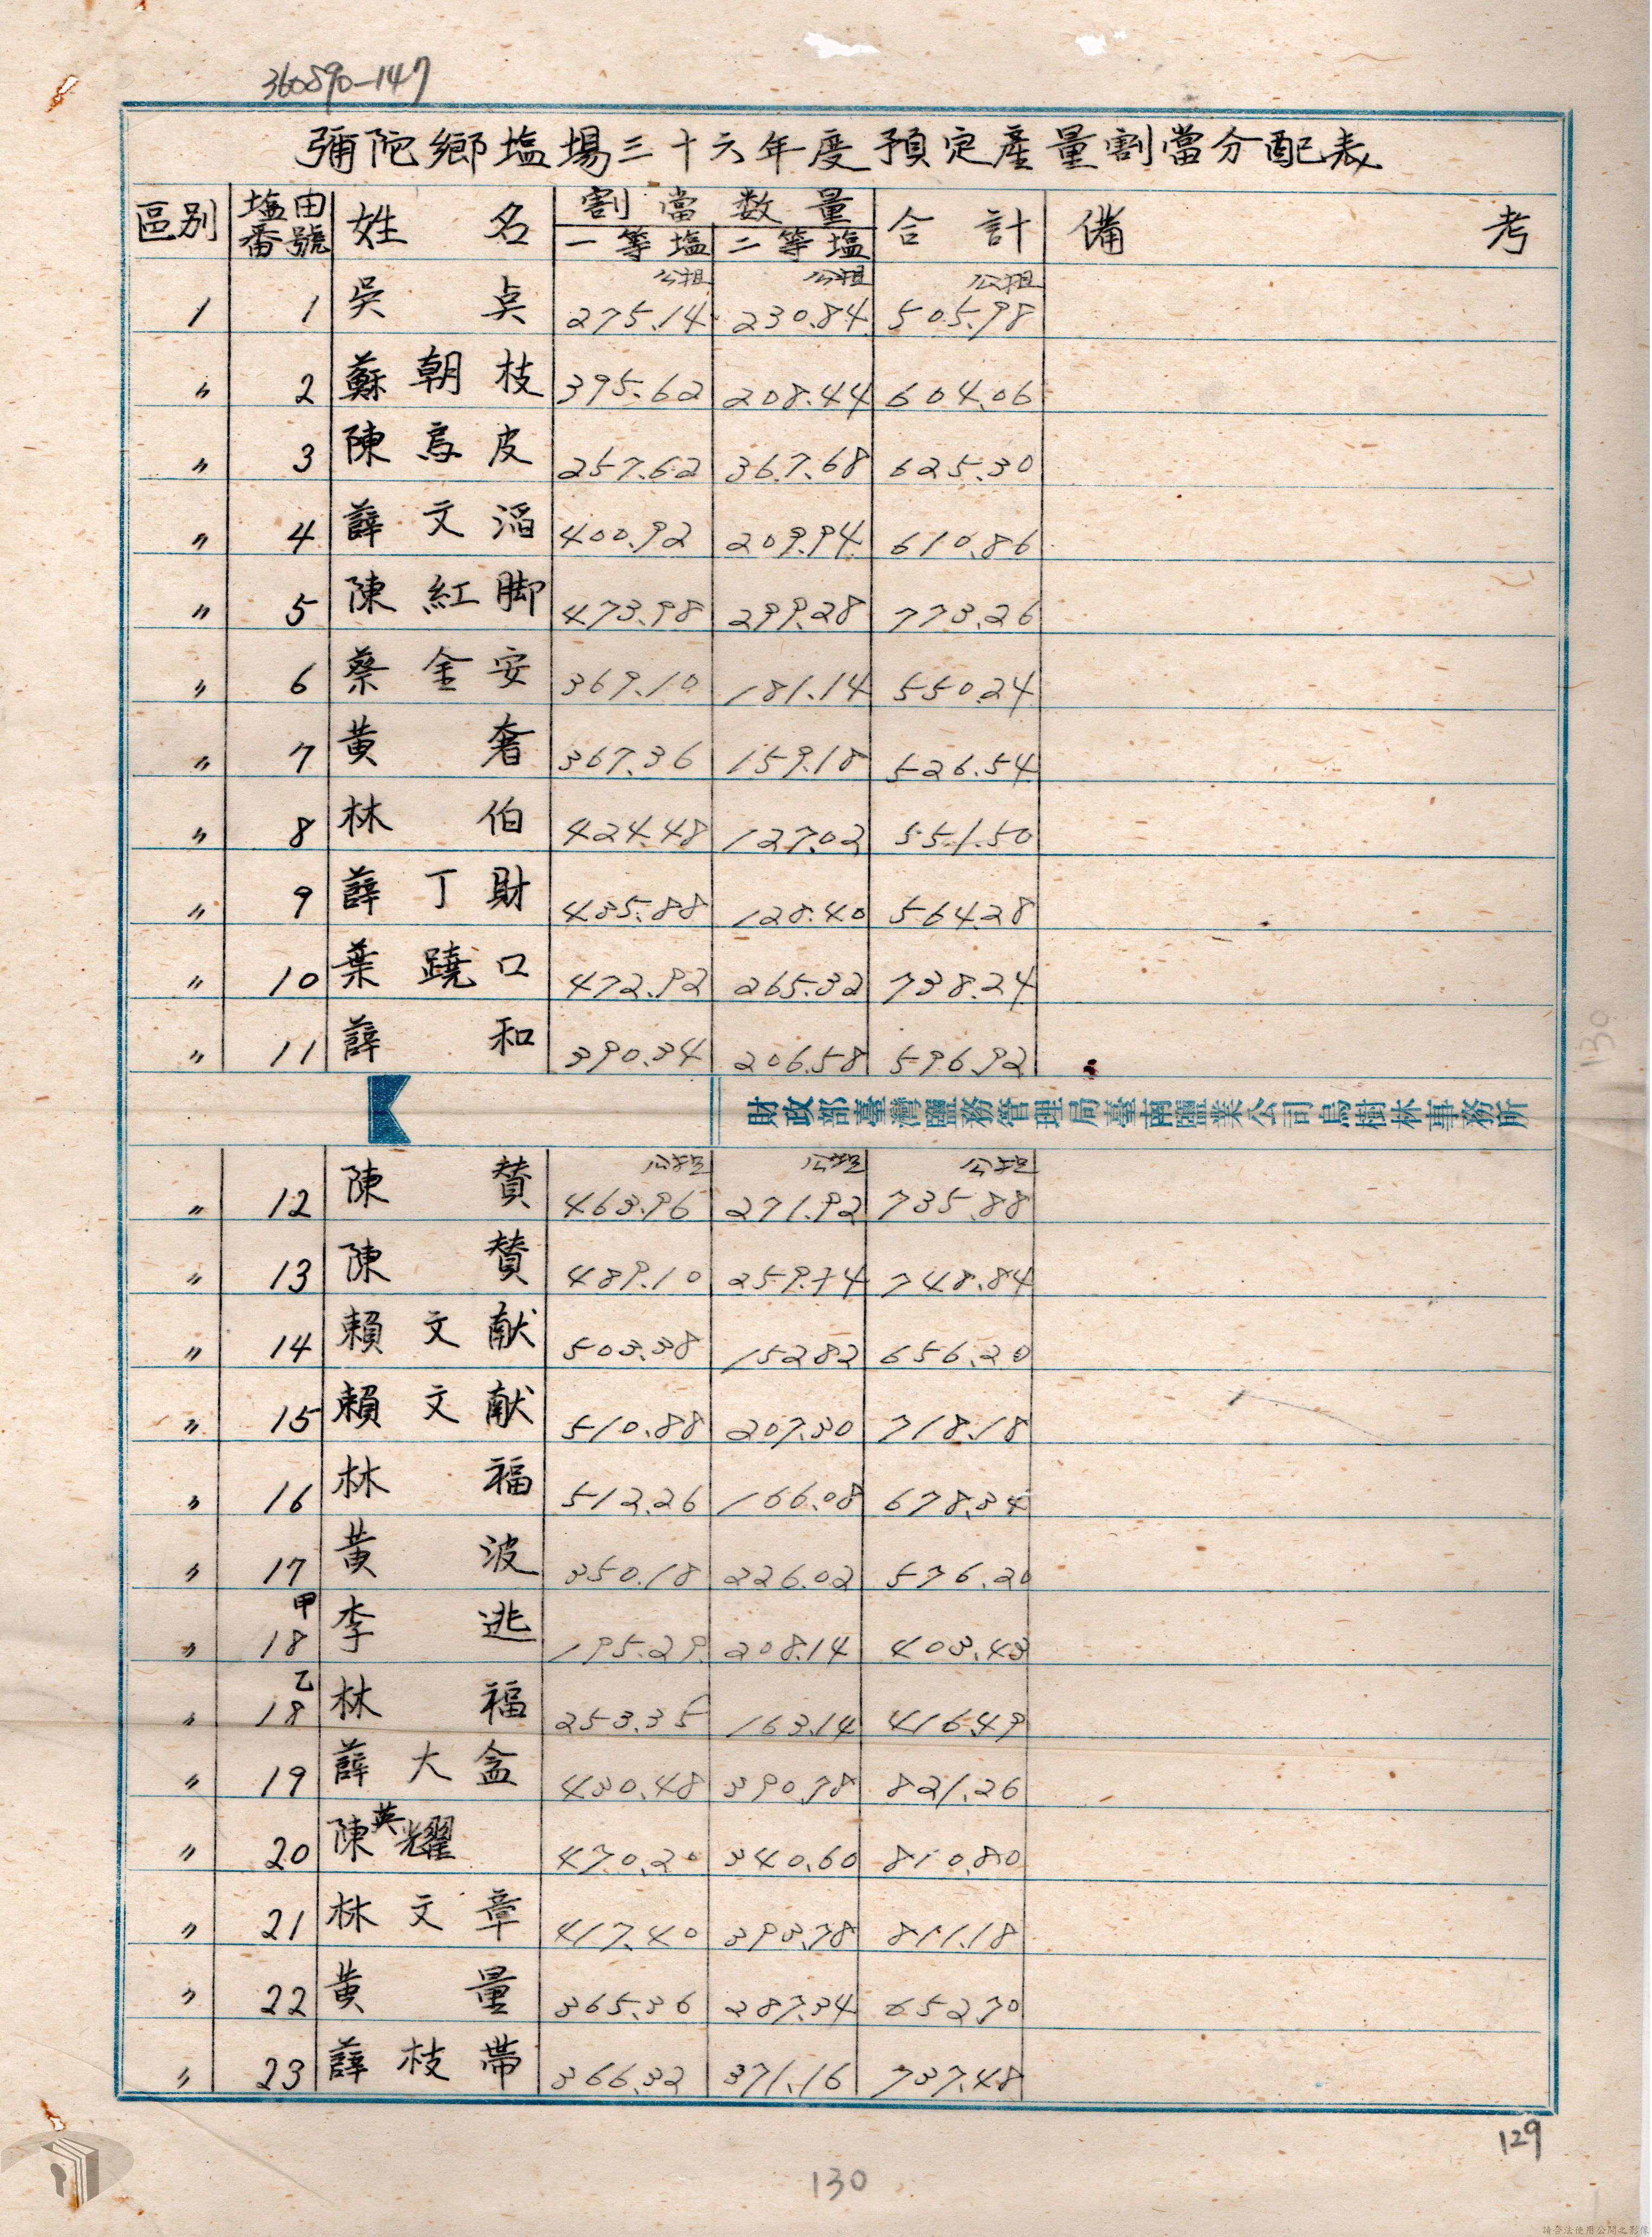 360590-147
彌陀鄉塩場三十六年度預定產量割當分配表
區別 塩田番號 姓名 割當数量 合計 備考
一等塩 二等塩
公担 公担 公担
1 1 吳貞 275.14 230.84 505.98
〃 2 蘇朝枝 395.62 208.44 604.06
〃 3 陳烏皮 257.62 367.68 625.30
〃 4 薛文滔 400.92 209.94 610.86
〃 5 陳紅脚 473.98 299.28 773.26
〃 6 蔡金安 369.10 181.14 550.24
〃 7 黄奢 367.36 159.18 526.54
〃 8 林伯 424.48 127.02 551.50
〃 9 薛丁財 435.88 128.40 564.28
〃 10 葉蹺口 472.92 265.32 738.24
〃 11 薛和 390.34 206.58 596.92
財政部臺灣鹽務管理局臺南鹽業公司烏樹林事務所
公担 公担 公担
〃 12 陳賛 463.96 271.92 735.88
〃 13 陳賛 489.10 259.74 748.84
〃 14 賴文献 503.38 152.82 656.20
〃 15 賴文献 510.88 207.30 718.18
〃 16 林福 512.26 166.08 678.34
〃 17 黄波 350.18 226.02 576.20
〃 甲18 李逃 195.29 208.14 403.43
〃 乙18 林福 253.35 163.14 416.49
〃 19 薛大盒 430.48 390.78 821.26
〃 20 陳英耀 470.20 340.60 810.80
〃 21 林文章 417.40 393.78 811.18
〃 22 黄量 365.36 287.34 652.70
〃 23 薛枝帶 366.32 371.16 737.48
130
129
130
請合法使用公開之影像